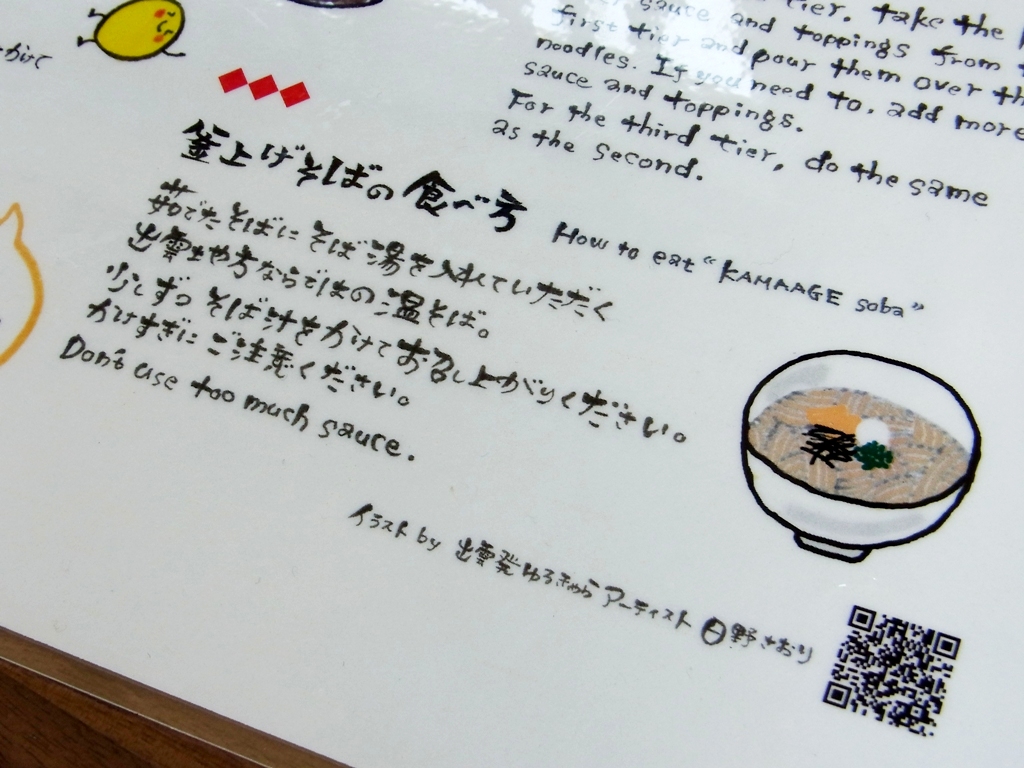 tier, take the
sauce and toppings from
first tier and pour them over th
noodles. If you need to, add more
sauce and toppings.
For the third tier, do the same
as the second.
かけて
釜上げそばの食べ方 How to eat "KAMAAGE soba"
茹でたそばにそば湯を入れていただく
出雲地方ならではの温そば。
少しずつそば汁をかけてお召し上がりください。
かけすぎにご注意ください。
Don't use too much sauce.
イラスト by 出雲発ゆるきゃらアーティスト 日野さおり